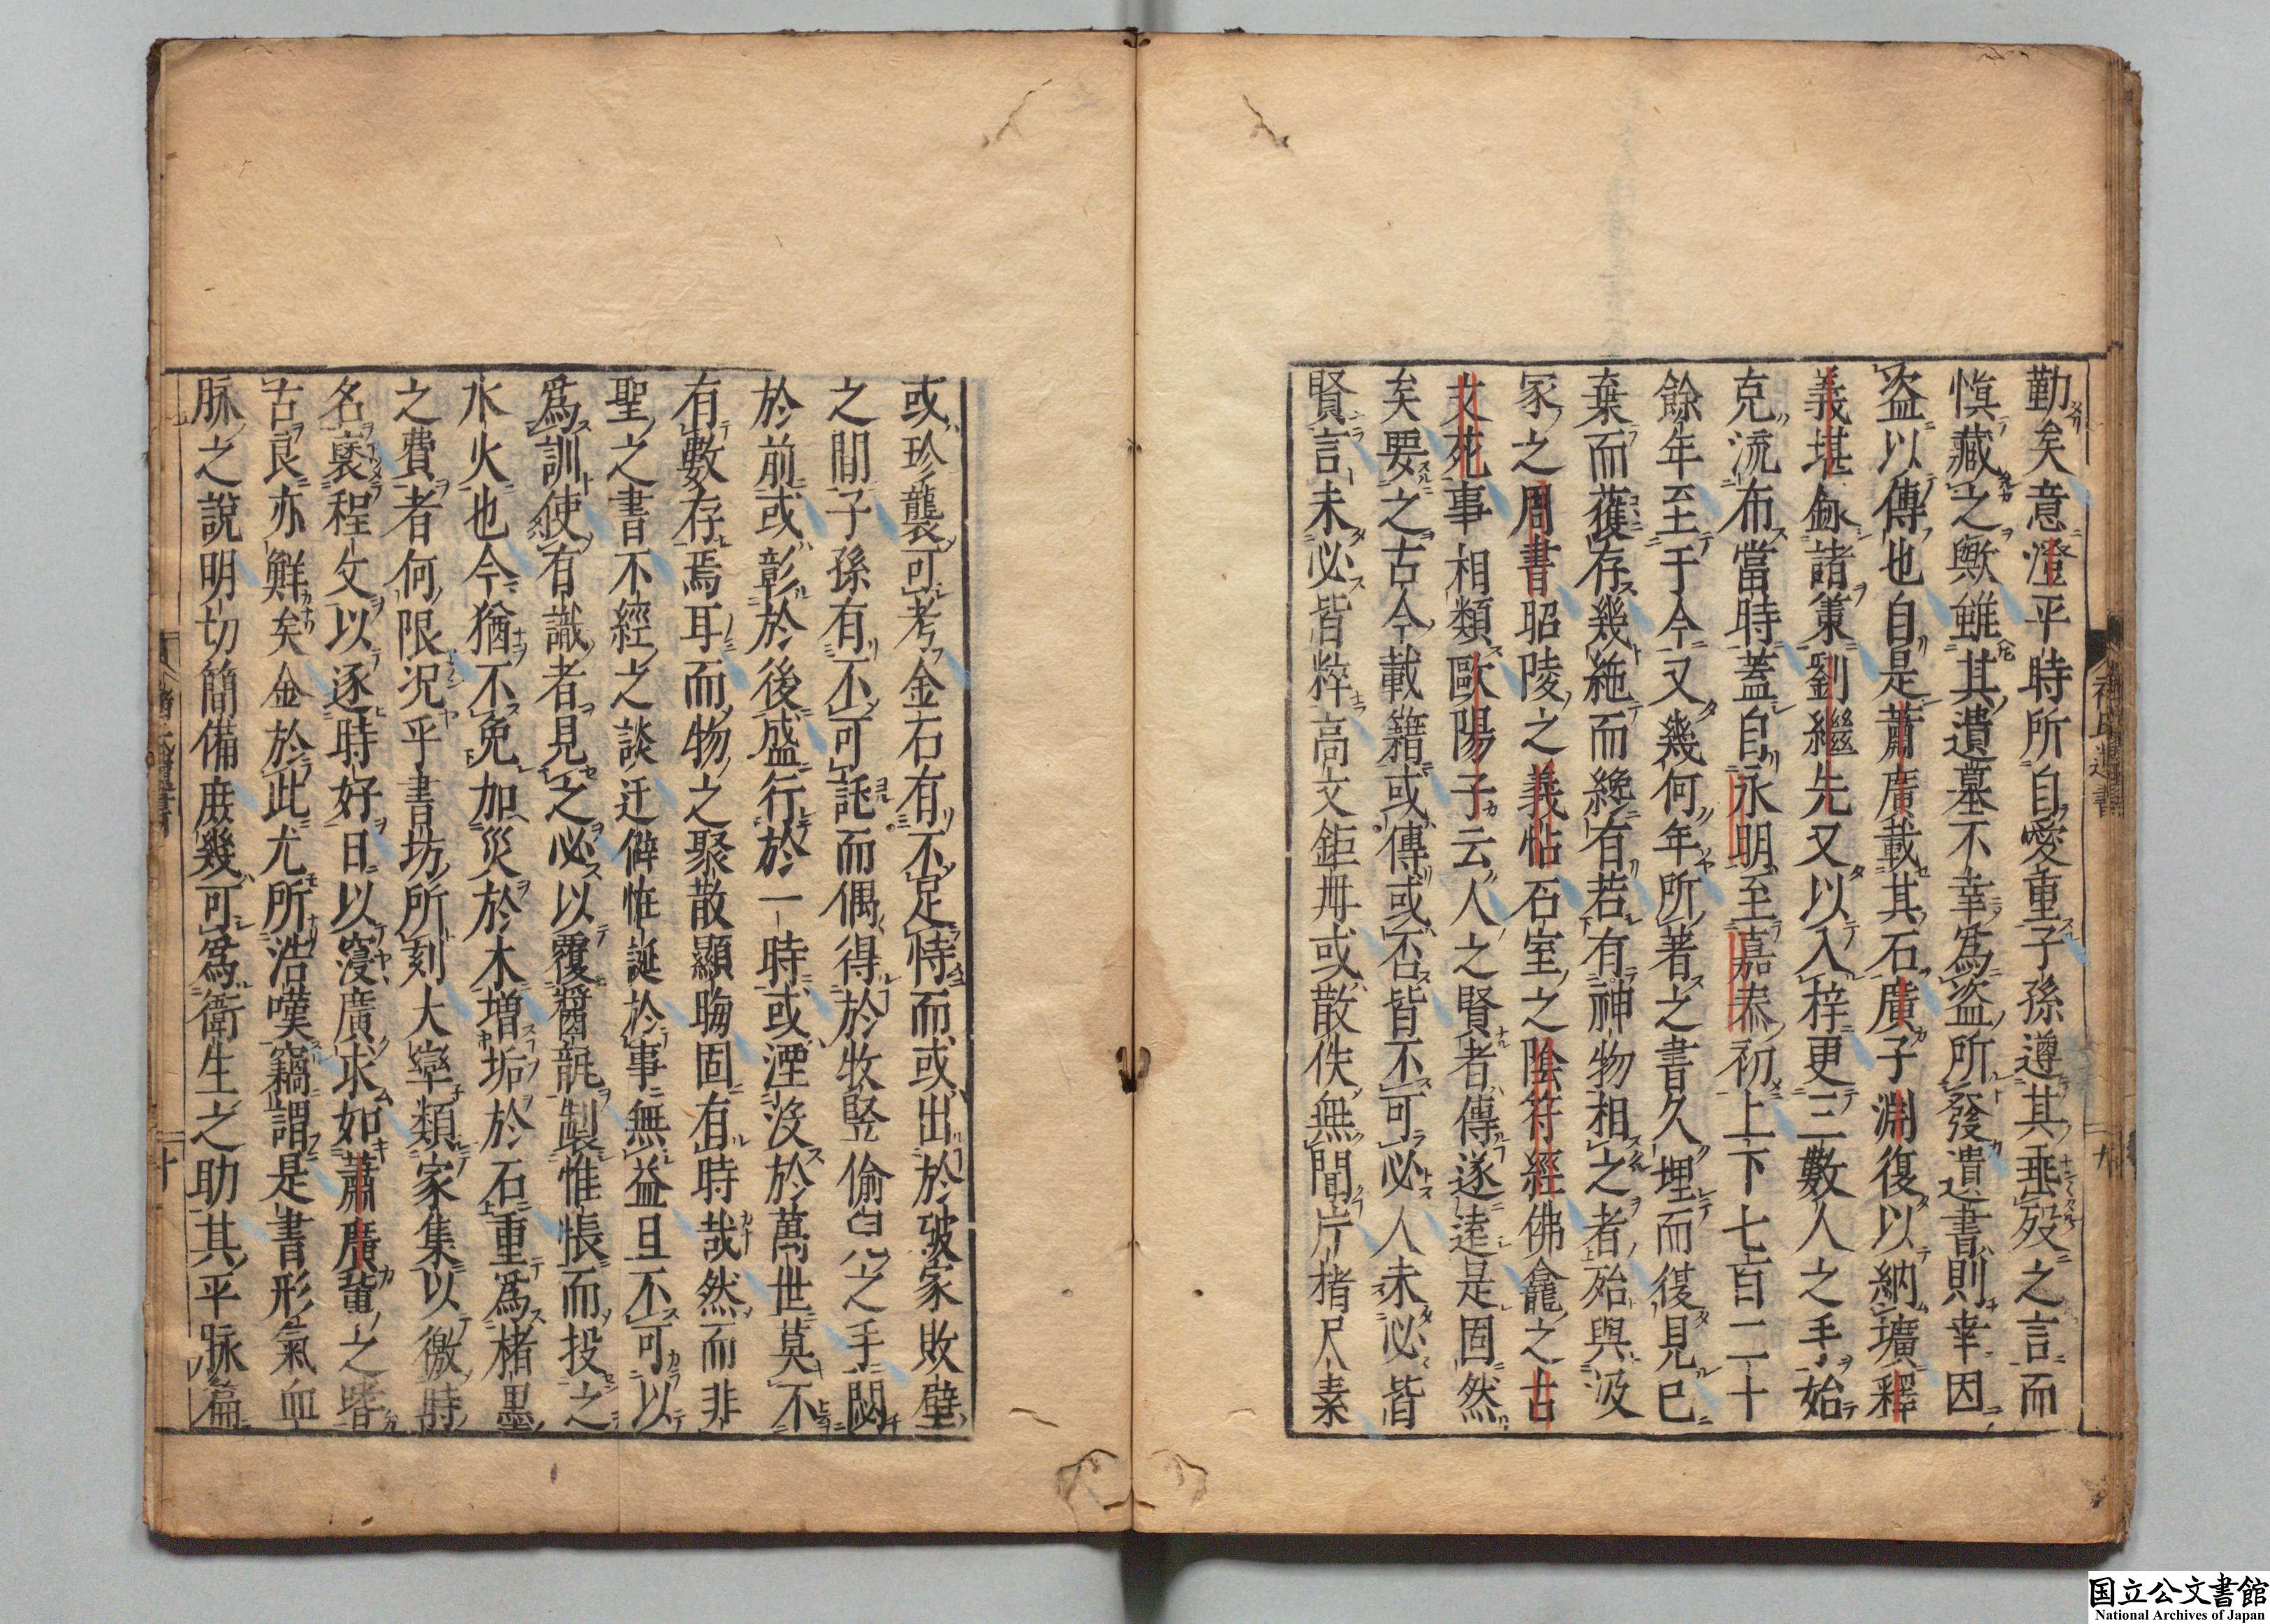 勤矣意澄平時所自愛重子孫遵其垂歿之言而
愼藏之歟雖其遺墓不幸爲盗所發遺書則幸因
盗以傳也自是蕭廣載其石廣子淵復以納壙釋
義堪錄諸篋劉繼先又以入梓更三數人之手始
克流布當時蓋自永明至嘉泰初上下七百二十
餘年至于今又幾何年所著之書久埋而復見已
棄而獲存幾絁而纔有若有神物相之者殆與汲
冢之周書昭陵之義帖石室之陰符經佛龕之古
文苑事相類歐陽子云人之賢者傳遂逺是固然
矣要之古今載籍或傳或否皆不可必人未必皆
賢言未必皆粹高文鉅冊或散佚無間片楮尺素
或珍襲可考金石有不足恃而或出於破家敗壁
之間子孫有不可託而偶得於牧竪偷皃之手閟
於前或彰於後盛行於一時或湮沒於萬世莫不
有數存焉耳而物之聚散顯晦固有時哉然而非
聖之書不經之談迂僻恠誕於事無益且不可以
爲訓使有識者見之必以覆醬瓿製帷帳而投之
水火也今猶不免加災於木增垢於石重爲楮墨
之費者何限況乎書坊所刻大率類家集以徼時
名裒程文以逐時好日以寖廣求如蕭廣輩之嗜
古良亦鮮矣金於此尤所浩嘆竊謂是書形氣血
脉之說明切簡備庶幾可爲衛生之助其平脉篇
褚氏遺書
九
褚氏遺書
十
国立公文書館
National Archives of Japan